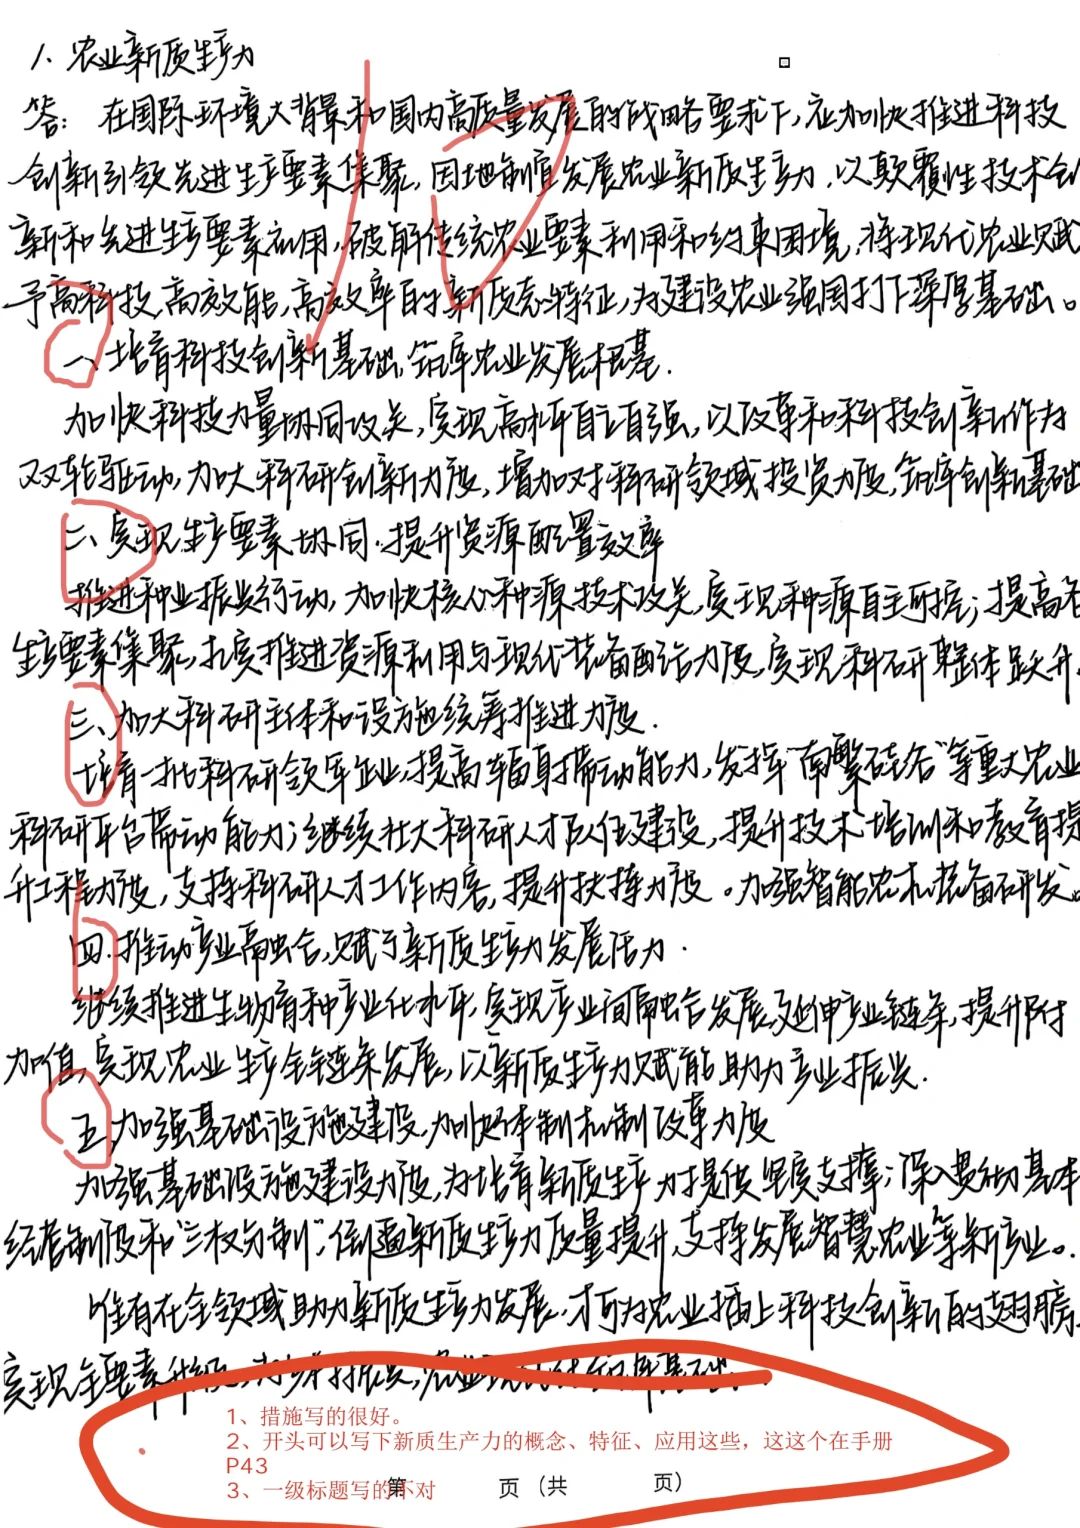 1、农业新质生产力
答：在国际环境大背景和国内高质量发展的战略要求下，应加快推进科技
创新引领先进生产要素集聚，因地制宜发展农业新质生产力，以颠覆性技术创
新和先进生产要素应用，破解传统农业要素利用和约束困境，将现代农业赋
予高科技，高效能，高效率的新质态特征，为建设农业强国打下深厚基础。
一、培育科技创新基础，筑牢农业发展根基.
加快科技力量协同攻关，实现高水平自立自强，以改革和科技创新作为
双轮驱动，加大科研创新力度，增加对科研领域投资力度，筑牢创新基础
二、实现生产要素协同，提升资源配置效率
推进种业振兴行动，加快核心种源技术攻关，实现种源自主可控；提高各
生产要素集聚，扎实推进资源利用与现代装备配给力度，实现科研整体跃升.
三、加大科研主体和设施统筹推进力度.
培育一批科研领军企业，提高辐射带动能力，发挥“南繁硅谷”等重大农业
科研平台带动能力；继续壮大科研人才队伍建设，提升技术培训和教育提
升工程力度，支持科研人才工作内容，提升扶持力度。加强智能农机装备研发。
四.推动产业融合，赋予新质生产力发展活力.
继续推进生物育种产业化水平，实现产业间融合发展，延伸产业链条，提升附
加值，实现农业生产全链条发展，以新质生产力赋能助力产业振兴.
五，加强基础设施建设，加快体制机制改革力度
加强基础设施建设力度，为培育新质生产力提供坚实支撑；深入贯彻基本
经营制度和“三权分制”，倒逼新质生产力质量提升，支持发展智慧农业等新产业。
唯有在全领域助力新质生产力发展，才可为农业插上科技创新的翅膀，
实现全要素升级，为乡村振兴，农业现代化筑牢基础.
1、措施写的很好。
2、开头可以写下新质生产力的概念、特征、应用这些，这这个在手册
P43
3、一级标题写的不对
第 页（共 页）